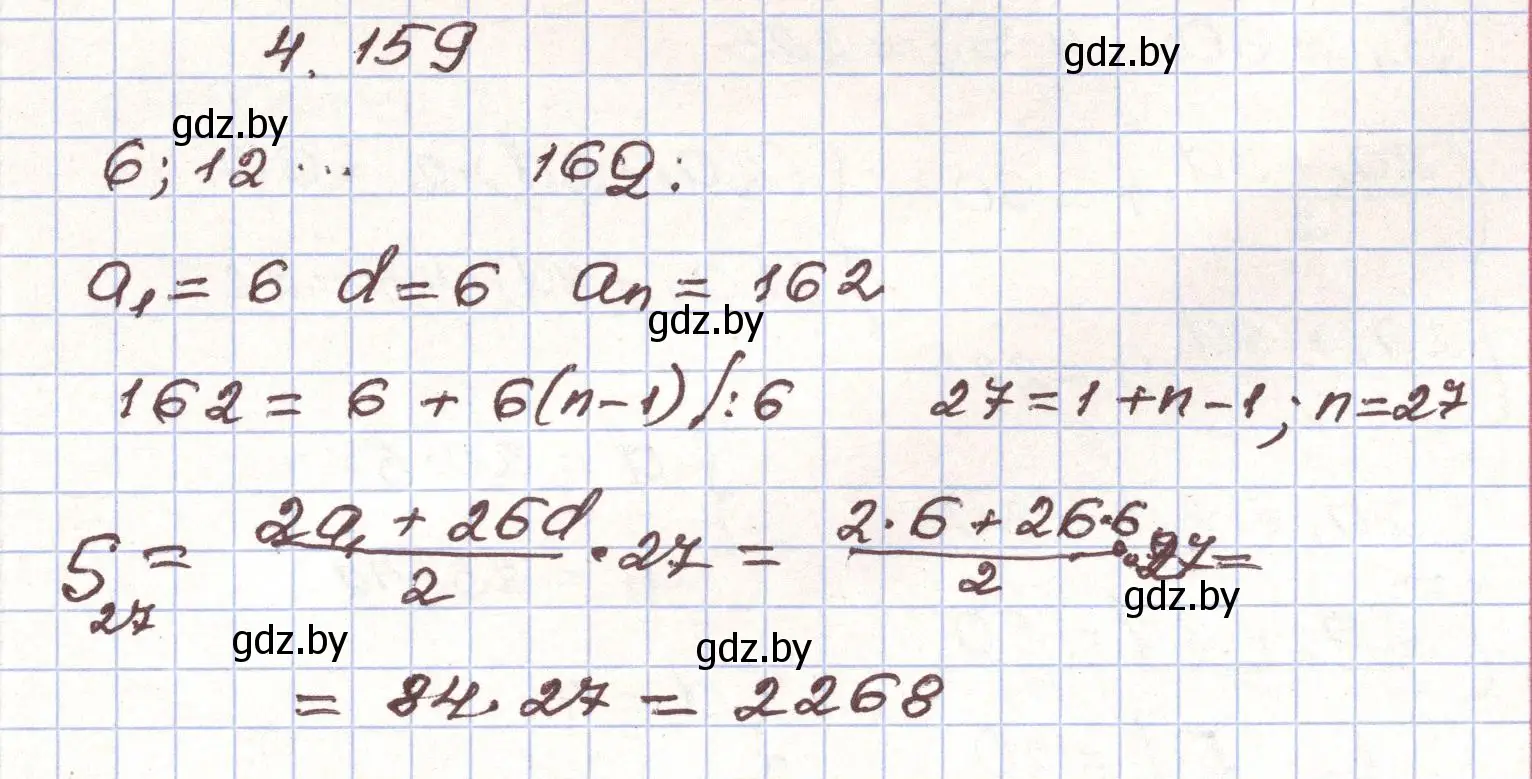 4. 159
gdz.by
gdz.by
6; 12 ... 162:
a₁ = 6 d = 6 aₙ = 162
gdz.by
162 = 6 + 6(n-1) |:6 27 = 1 + n - 1; n = 27
S₂₇ = (2a₁ + 26d)/2 · 27 = (2·6 + 26·6)/2 · 27 =
gdz.by
gdz.by
gdz.by
= 84 · 27 = 2268